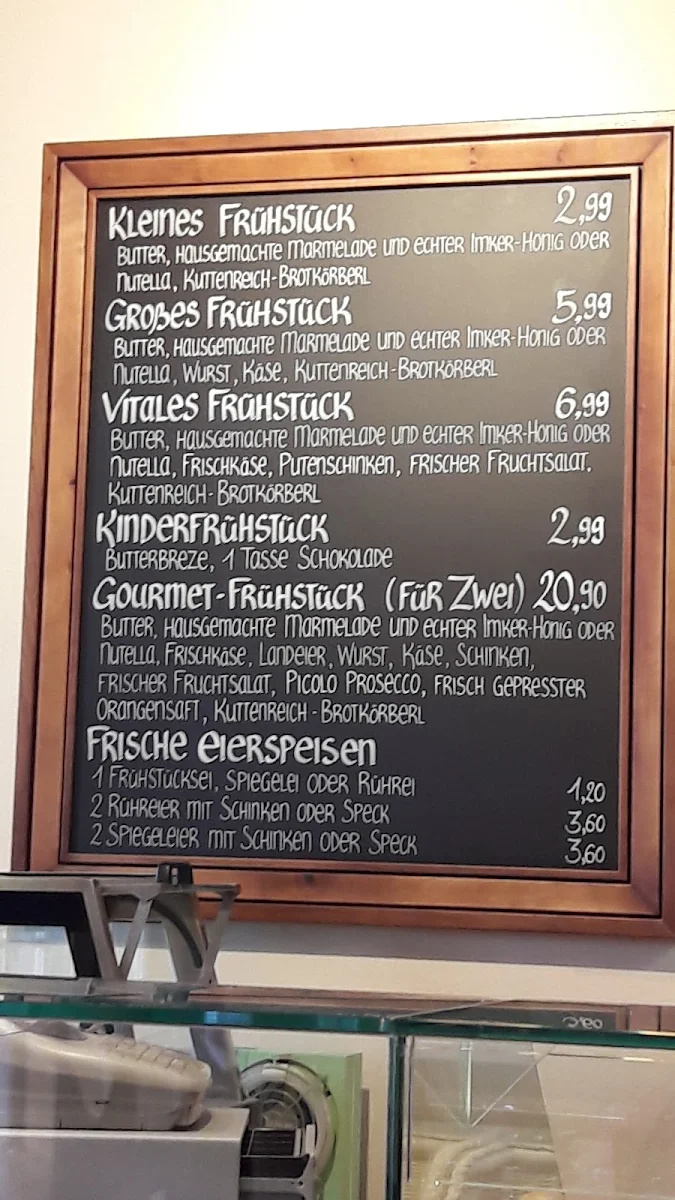 Kleines Frühstück 2,99
Butter, hausgemachte Marmelade und echter Imker-Honig oder
Nutella, Kuttenreich-Brotkörberl
Großes Frühstück 5,99
Butter, hausgemachte Marmelade und echter Imker-Honig oder
Nutella, Wurst, Käse, Kuttenreich-Brotkörberl
Vitales Frühstück 6,99
Butter, hausgemachte Marmelade und echter Imker-Honig oder
Nutella, Frischkäse, Putenschinken, frischer Fruchtsalat.
Kuttenreich-Brotkörberl
Kinderfrühstück 2,99
Butterbreze, 1 Tasse Schokolade
Gourmet-Frühstück (für Zwei) 20,90
Butter, hausgemachte Marmelade und echter Imker-Honig oder
Nutella, Frischkäse, Landeier, Wurst, Käse, Schinken,
frischer Fruchtsalat, Picolo Prosecco, frisch gepresster
Orangensaft, Kuttenreich-Brotkörberl
Frische Eierspeisen
1 Frühstücksei, Spiegelei oder Rührei 1,20
2 Rühreier mit Schinken oder Speck 3,60
2 Spiegeleier mit Schinken oder Speck 3,60